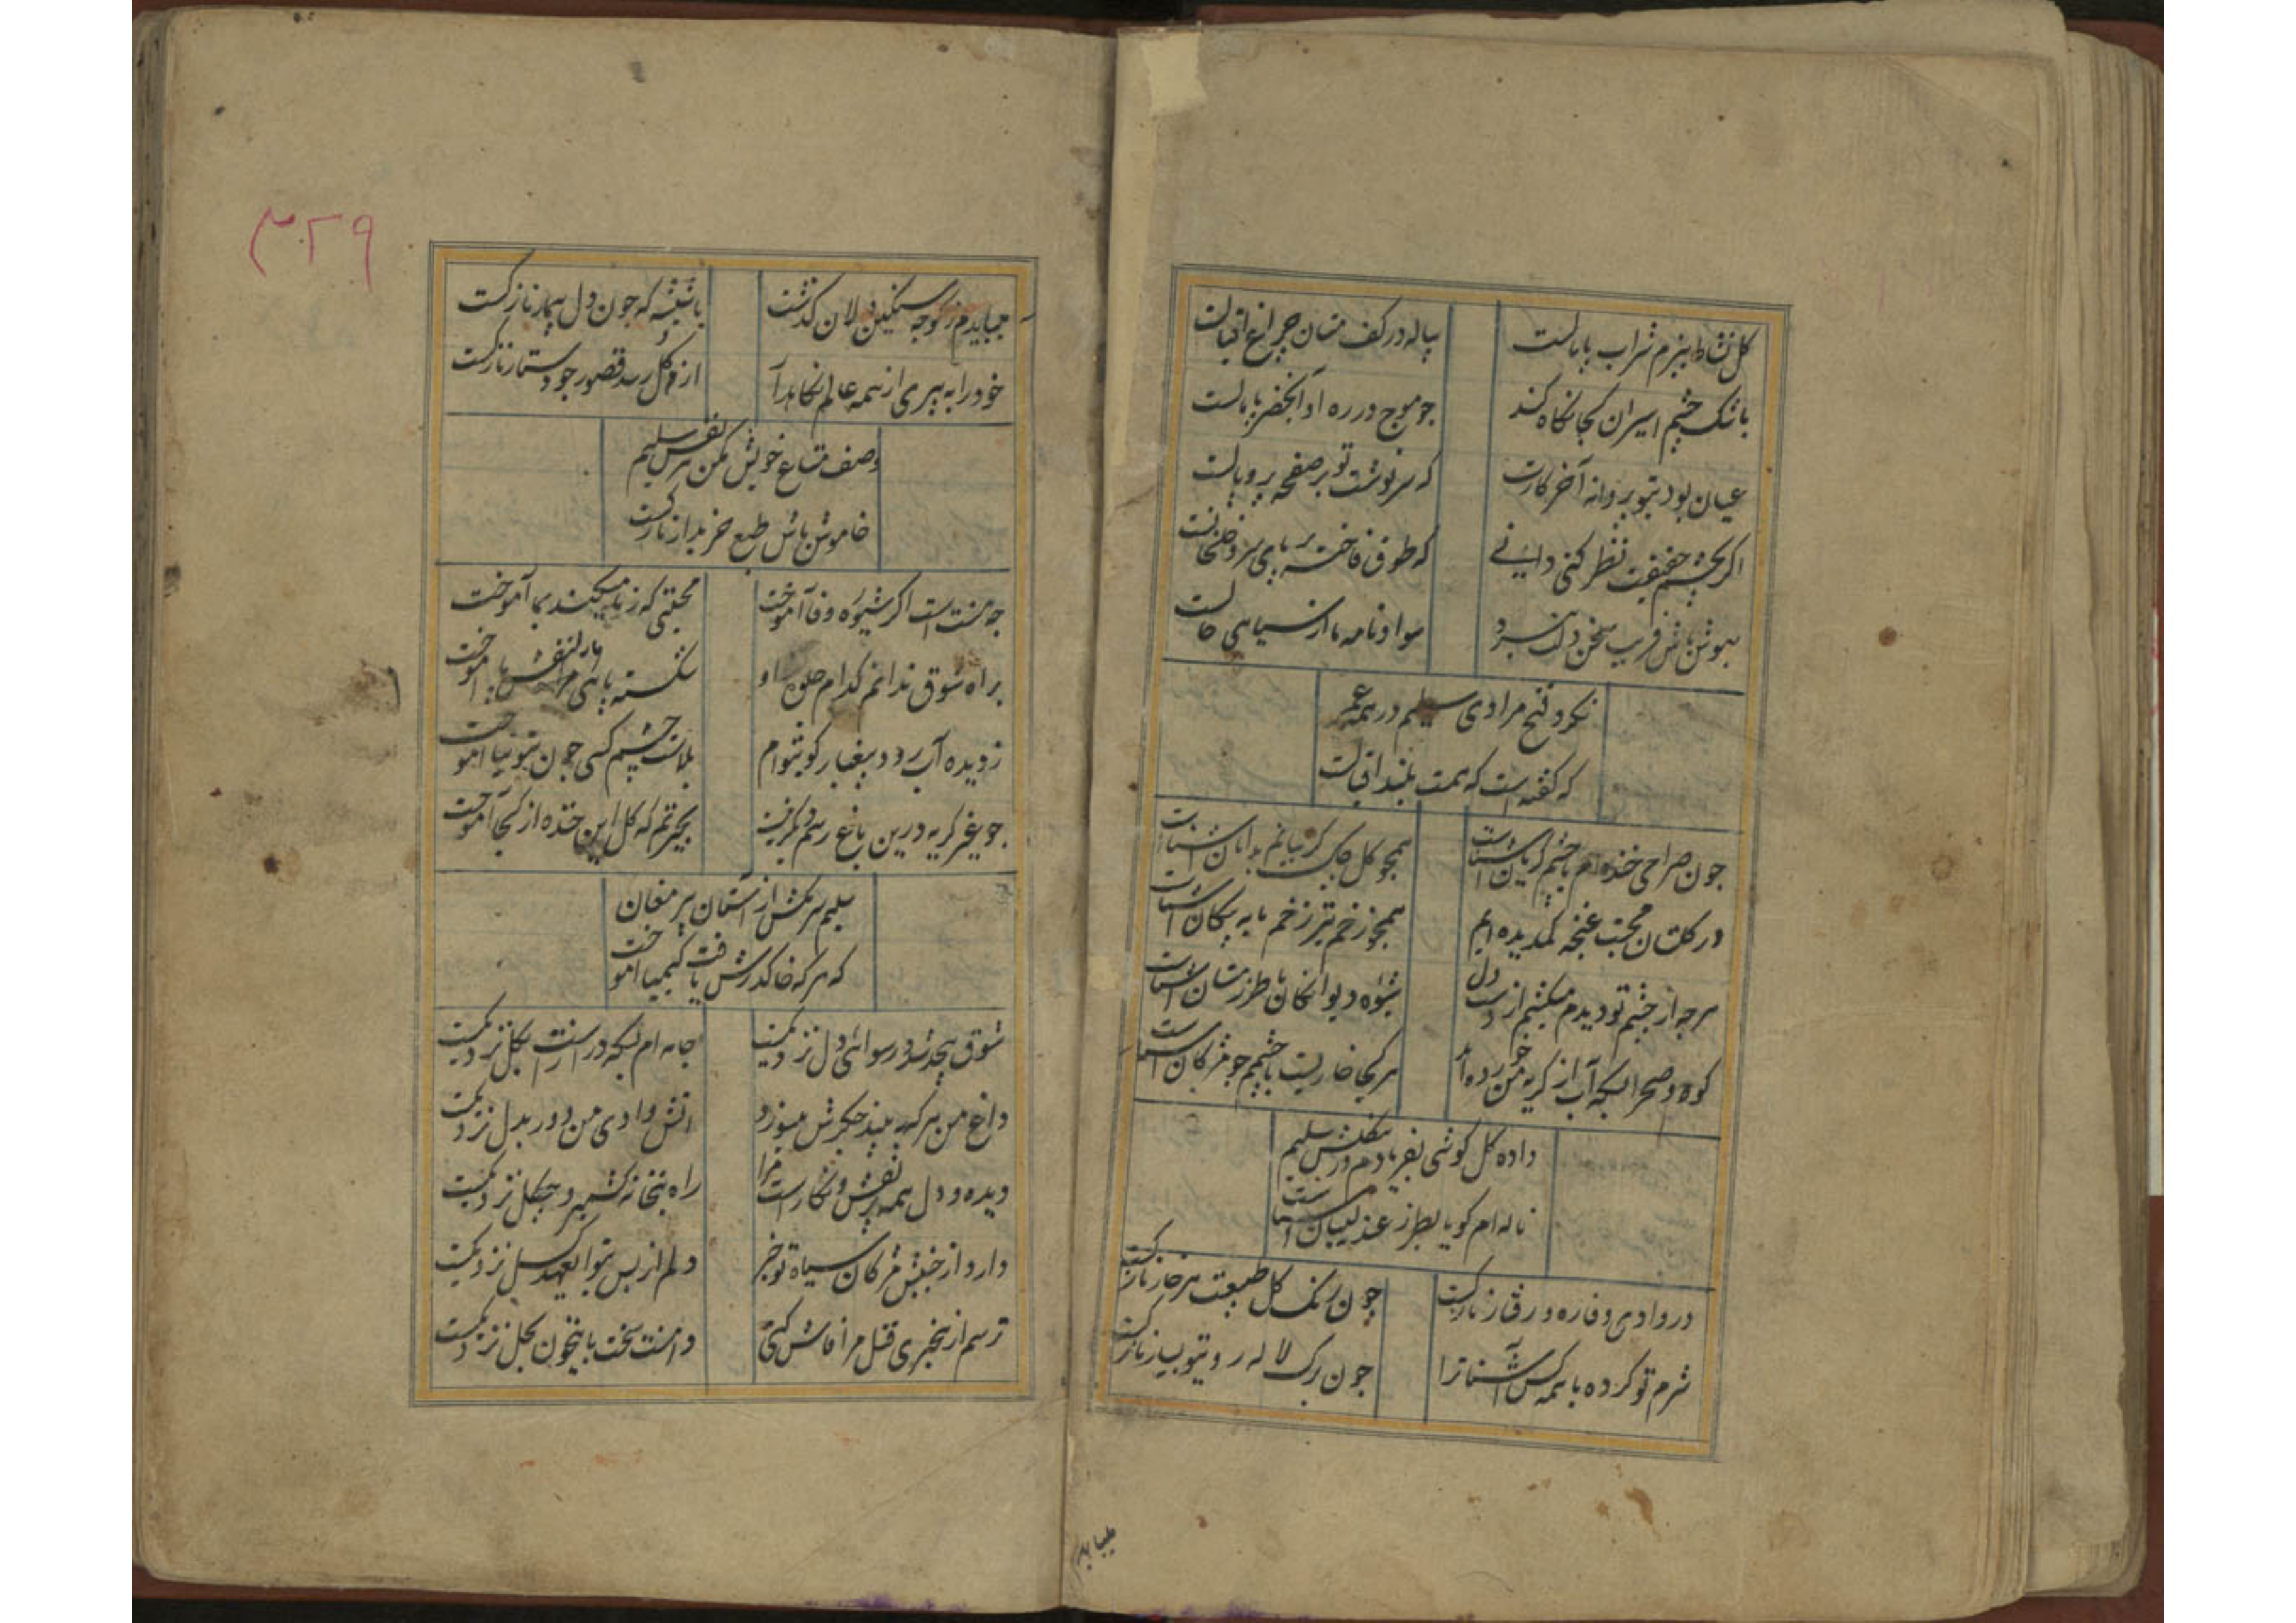 کل نشاط ببزم شراب پامالست
پیاله در کف مستان چراغ اقبالست
باشک چشم اسیران کجا نکاه کند
جو موج در ره او آبخضر پامالست
عیان بود بتو پروانه آخر کارت
که سرنوشت تو بر صفحه پر و بالست
اکر بچشم حقیقت نظر کنی دانی
که طوق فاخته بر پای سرو خلخالست
بهوش باش فریب سخن دلت نبرد
سواد نامه ما از سیاهی خالست
نکرد فتح مرادی سلیم در همه عمر
که کفته است که همت بلند اقبالست
جون صراحی خنده ام با چشم کریان آشناست
همجو کل جاک کریبانم بدامان آشناست
در کلستان محبت غنچه کم دیده ایم
همجو زخم تیر زخم ما به پیکان آشناست
هرجه از چشم تو دیدم میکشم از دست دل
شیوه دیوانکان با طرز مستان آشناست
کوه و صحرا بسکه آب از کریه من خورده اند
هر کجا خاریست با چشمم جو مژکان آشناست
داده کل کوشی بفریادم در کلشن سلیم
ناله ام کویا بطرز عندلیبان آشناست
در وادی وفا ره و رفتار نازکست
چون رنک کل طبیعت هر خار نازکست
شرم تو کرده با همه کس آشنا ترا
جون برک لاله رو بتو بسیار نازکست
میباید
۳۲۹
میبایدم ز کوجه سنکین دلان کذشت
باشیشه که جون دل بیمار نازکست
خود را به پیری از همه عالم نکاهدار
از کل رسد قصور جو دستار نازکست
وصف متاع خویش مکن بس سلیم
خاموش باش طبع خریدار نازکست
جه منت است اکر شیوه وفا آموخت
محبتی که ز ما میکند بما آموخت
براه شوق ندانم کدام جلوه او
شکسته پائی ما را بنقش پا آموخت
ز دیده آب رود بیغبار کو بتوام
بلاست چشم کسی چون بتوتیا آموخت
جو غیر کریه درین باغ رسم دیکر نیست
بحیرتم که کل این خنده از کجا آموخت
سلیم سر مکش از آستان پیر مغان
که هر که خاک درش یافت کیمیا آموخت
شوق بیحد شد و رسوائی دل نزدیکست
جامه ام بسکه دراز است بکل نزدیکست
داغ من هر که ببیند جکرش میسوزد
آتش وادی من دور بدل نزدیکست
دیده و دل همه پر نقش و نکار است مرا
راه بتخانه کشمیر و چکل نزدیکست
دارد از جنبش مژکان سیاه تو خبر
دلم از بس بتو ای عهدکسل نزدیکست
ترسم از بیخبری قتل مرا فاش کنی
دامنت سخت باین خون بحل نزدیکست